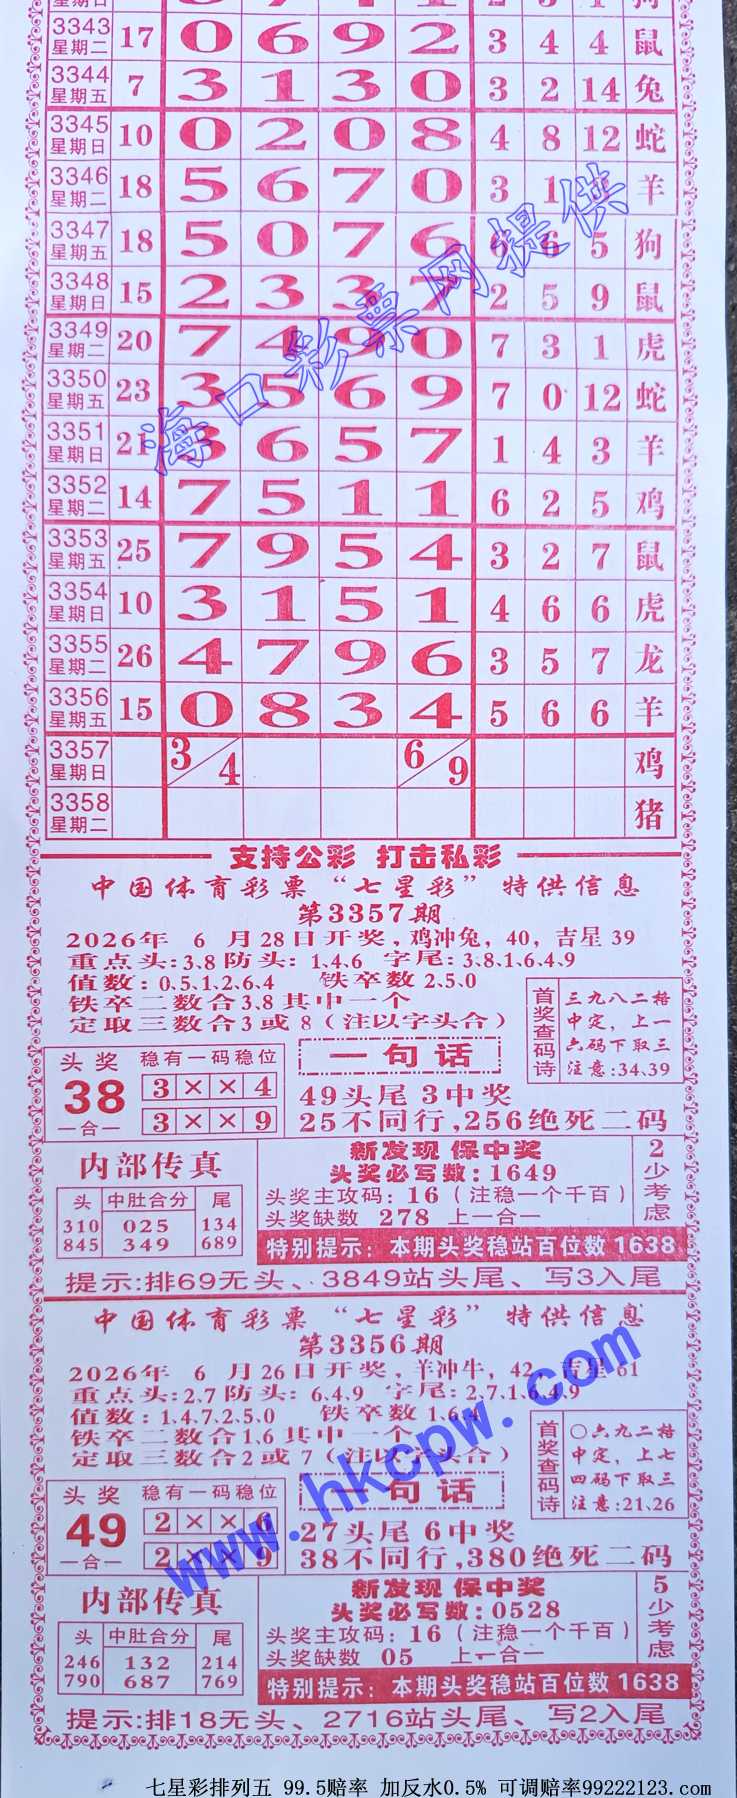 3343 星期二 17 0 6 9 2 3 4 4 鼠
3344 星期五 7 3 1 3 0 3 2 14 兔
3345 星期日 10 0 2 0 8 4 8 12 蛇
3346 星期二 18 5 6 7 0 3 1 羊
3347 星期五 18 5 0 7 6 6 6 5 狗
3348 星期日 15 2 3 3 7 2 5 9 鼠
3349 星期二 20 7 4 9 0 7 3 1 虎
3350 星期五 23 3 5 6 9 7 0 12 蛇
3351 星期日 21 3 6 5 7 1 4 3 羊
3352 星期二 14 7 5 1 1 6 2 5 鸡
3353 星期五 25 7 9 5 4 3 2 7 鼠
3354 星期日 10 3 1 5 1 4 6 6 虎
3355 星期二 26 4 7 9 6 3 5 7 龙
3356 星期五 15 0 8 3 4 5 6 6 羊
3357 星期日 3/4 6/9 鸡
3358 星期二 猪
海口彩票网提供
支持公彩 打击私彩
中国体育彩票“七星彩”特供信息
第3357期
2026年 6 月28日开奖,鸡冲兔,40,吉星39
重点头:3.8防头:1.4.6 字尾:3.8.1.6.4.9
值数:0.5.1.2.6.4 铁卒数2.5.0
铁卒二数合3.8其中一个
定取三数合3或8(注以字头合)
首奖查码诗
三九八二梧
中定,上一
六码下取三
注意:34.39
头奖
38
一合一
稳有一码稳位
3 × × 4
3 × × 9
一句话
49头尾3中奖
25不同行,256绝死二码
内部传真
头 中肚合分 尾
310 025 134
845 349 689
新发现 保中奖
头奖必写数:1649
头奖主攻码:16(注稳一个千百)
头奖缺数 278 上一合一
2少考虑
特别提示:本期头奖稳站百位数1638
提示:排69无头、3849站头尾、写3入尾
中国体育彩票“七星彩”特供信息
第3356期
2026年 6 月26日开奖,羊冲牛,42 吉星61
重点头:2.7防头:6.4.9 字尾:2.7.1.6.4.9
值数:1.4.7.2.5.0 铁卒数1.6.4
铁卒二数合1.6其中一个
定取三数合2或7(注以字头合)
首奖查码诗
〇六九二梧
中定,上七
四码下取三
注意:21.26
头奖
49
一合一
稳有一码稳位
2 × × 6
2 × × 9
一句话
27头尾6中奖
38不同行,380绝死二码
内部传真
头 中肚合分 尾
246 132 214
790 687 769
新发现 保中奖
头奖必写数:0528
头奖主攻码:16(注稳一个千百)
头奖缺数 05 上一合一
5少考虑
特别提示:本期头奖稳站百位数1638
提示:排18无头、2716站头尾、写2入尾
www.hkcpw.com
七星彩排列五 99.5赔率 加反水0.5% 可调赔率99222123.com